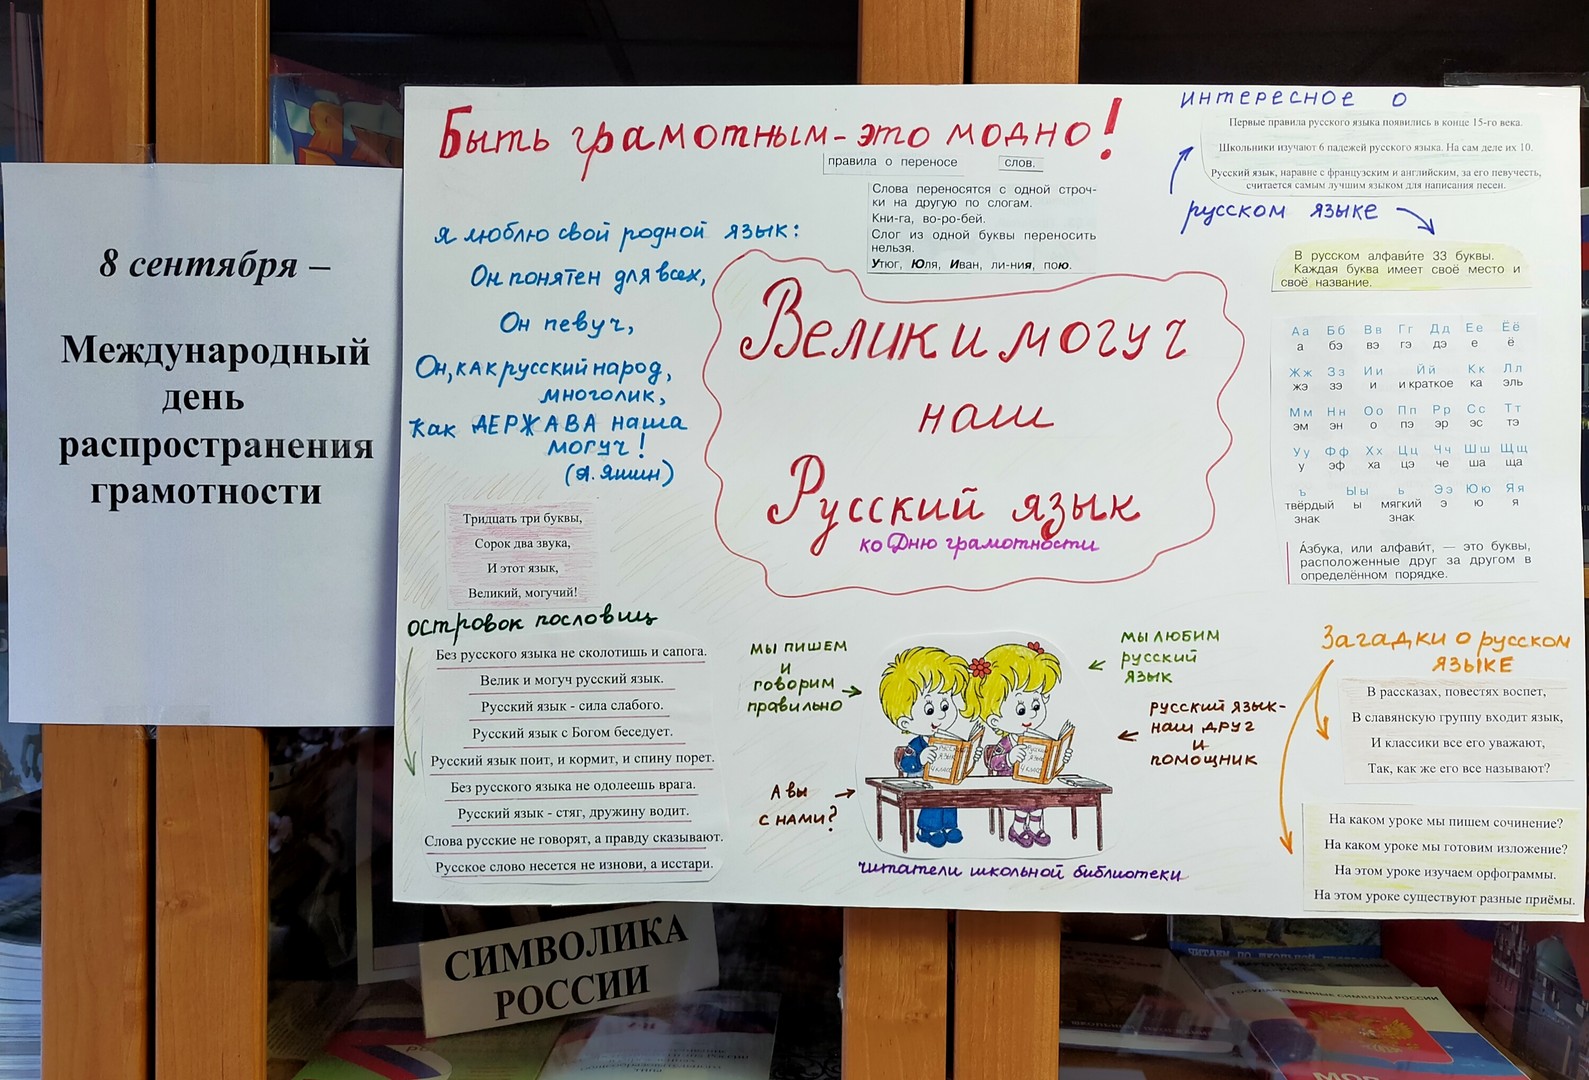 8 сентября –
Международный
день
распространения
грамотности
Быть грамотным - это модно!
правила о переносе слов.
Слова переносятся с одной строч-
ки на другую по слогам.
Кни-га, во-ро-бей.
Слог из одной буквы переносить
нельзя.
Утюг, Юля, Иван, ли-ния, пою.
Я люблю свой родной язык:
Он понятен для всех,
Он певуч,
Он, как русский народ,
многолик,
Как ДЕРЖАВА наша
могуч!
(А. Яшин)
Тридцать три буквы,
Сорок два звука,
И этот язык,
Великий, могучий!
островок пословиц
Без русского языка не сколотишь и сапога.
Велик и могуч русский язык.
Русский язык - сила слабого.
Русский язык с Богом беседует.
Русский язык поит, и кормит, и спину порет.
Без русского языка не одолеешь врага.
Русский язык - стяг, дружину водит.
Слова русские не говорят, а правду сказывают.
Русское слово несется не изнови, а исстари.
Велик и могуч
наш
Русский язык
ко Дню грамотности
мы пишем
и
говорим
правильно
А вы
с нами?
мы любим
русский
язык
русский язык-
наш друг
и
помощник
читатели школьной библиотеки
интересное о
Первые правила русского языка появились в конце 15-го века.
Школьники изучают 6 падежей русского языка. На сам деле их 10.
Русский язык, наравне с французским и английским, за его певучесть,
считается самым лучшим языком для написания песен.
русском языке
В русском алфави́те 33 буквы.
Каждая буква имеет своё место и
своё название.
Аа Бб Вв Гг Дд Ее Ёё
а бэ вэ гэ дэ е ё
Жж Зз Ии Йй Кк Лл
жэ зэ и и краткое ка эль
Мм Нн Оо Пп Рр Сс Тт
эм эн о пэ эр эс тэ
Уу Фф Хх Цц Чч Шш Щщ
у эф ха цэ че ша ща
ъ Ыы ь Ээ Юю Яя
твёрдый ы мягкий э ю я
знак знак
А́збука, или алфави́т, — это буквы,
расположенные друг за другом в
определённом порядке.
Загадки о русском
языке
В рассказах, повестях воспет,
В славянскую группу входит язык,
И классики все его уважают,
Так, как же его все называют?
На каком уроке мы пишем сочинение?
На каком уроке мы готовим изложение?
На этом уроке изучаем орфограммы.
На этом уроке существуют разные приёмы.
СИМВОЛИКА
РОССИИ
ГОСУДАРСТВЕННЫЕ СИМВОЛЫ РОССИИ